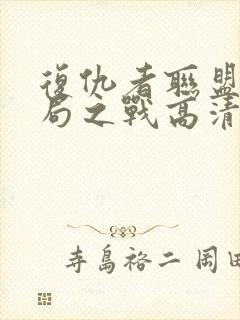 復仇者聯盟
局之戰高清
寺島裕二 岡田